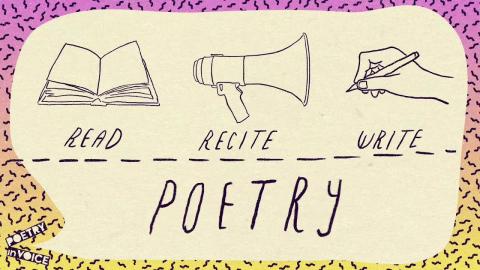 READ RECITE WRITE
POETRY
POETRY
In VOICE